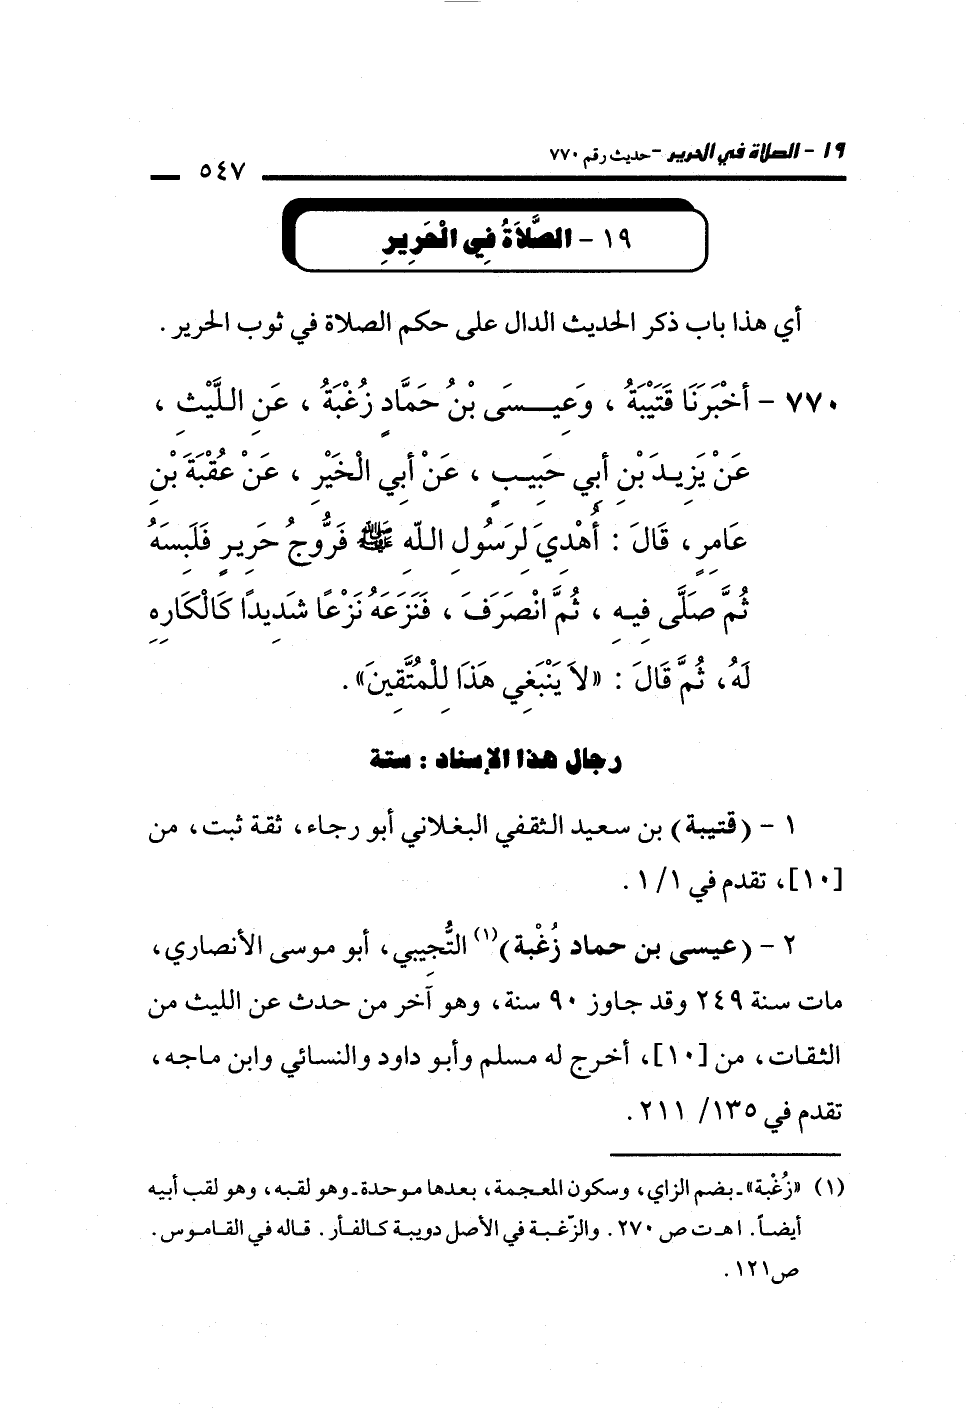 ١٩ - الصلاة في الحرير - حديث رقم ٧٧٠
٥٤٧
١٩ - الصَّلاَةُ فِي الْحَرِيرِ
أي هذا باب ذكر الحديث الدال على حكم الصلاة في ثوب الحرير .
٧٧٠ - أخْبَرَنَا قُتَيْبَةُ ، وَعِيسَى بْنُ حَمَّادٍ زُغْبَةُ ، عَنِ اللَّيْثِ ،
عَنْ يَزِيدَ بْنِ أبِي حَبِيبٍ ، عَنْ أبِي الْخَيْرِ ، عَنْ عُقْبَةَ بْنِ
عَامِرٍ ، قَالَ : أُهْدِيَ لِرَسُولِ اللّهِ ﷺ فَرُّوجُ حَرِيرٍ فَلَبِسَهُ
ثُمَّ صَلَّى فِيهِ ، ثُمَّ انْصَرَفَ ، فَنَزَعَهُ نَزْعًا شَدِيدًا كَالْكَارِهِ
لَهُ، ثُمَّ قَالَ : «لاَ يَنْبَغِي هَذَا لِلْمُتَّقِينَ» .
رجال هذا الإسناد : ستة
١ - (قتيبة) بن سعيد الثقفي البغلاني أبو رجاء، ثقة ثبت، من
[١٠]، تقدم في ١/١ .
٢ - (عيسى بن حماد زُغْبة)(١) التُّجِيبي، أبو موسى الأنصاري،
مات سنة ٢٤٩ وقد جاوز ٩٠ سنة، وهو آخر من حدث عن الليث من
الثقات، من [١٠]، أخرج له مسلم وأبو داود والنسائي وابن ماجه،
تقدم في ١٣٥/ ٢١١ .
(١) «زُغْبة» ـ بضم الزاي، وسكون المعجمة، بعدها موحدة ـ وهو لقبه، وهو لقب أبيه
أيضاً. اهـ ت ص ٢٧٠. والزّغبة في الأصل دويبة كالفأر. قاله في القاموس.
ص١٢١ .